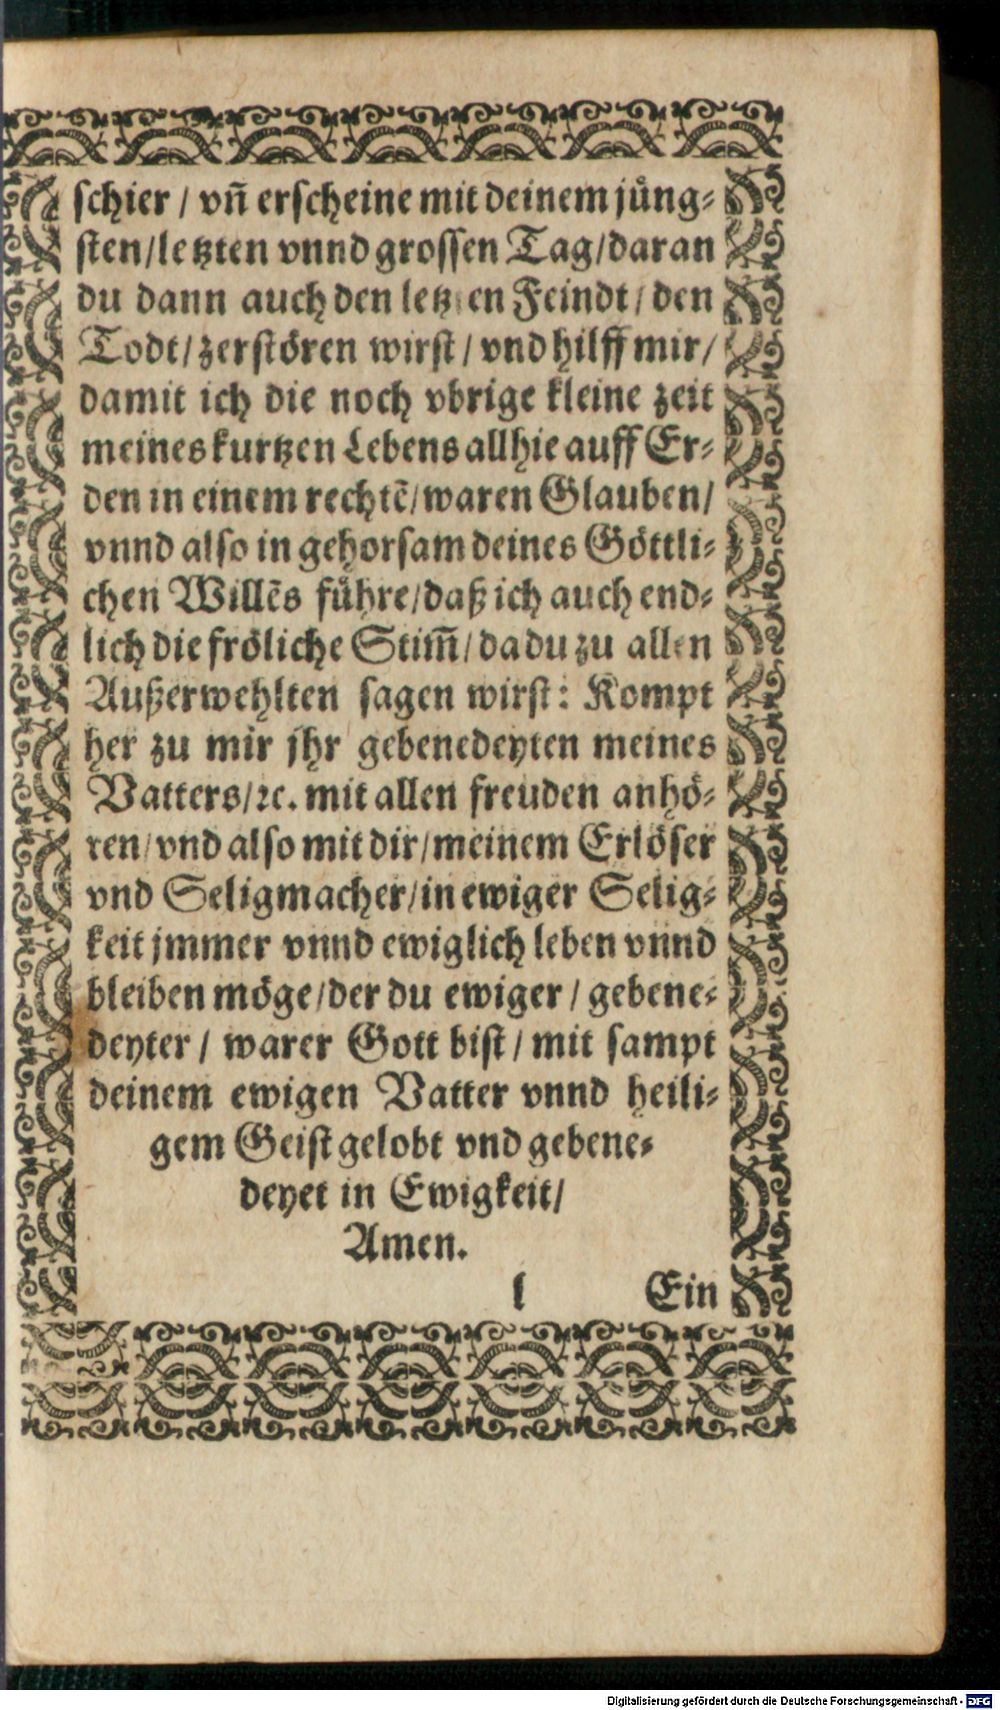 schier / vñ erscheine mit deinem jüng⸗
sten/letzten vnnd grossen Tag/daran
du dann auch den letzten Feindt/ den
Todt/zerstören wirst/ vnd hilff mir/
damit ich die noch vbrige kleine zeit
meines kurtzen Lebens allhie auff Er⸗
den in einem rechtẽ/waren Glauben/
vnnd also in gehorsam deines Göttli⸗
chen Willẽs führe/daß ich auch end⸗
lich die fröliche Stim̃/da du zu allen
Außerwehlten sagen wirst: Kompt
her zu mir jhr gebenedeyten meines
Vatters/ꝛc. mit allen freuden anhö⸗
ren/vnd also mit dir/meinem Erlöser
vnd Seligmacher/in ewiger Selig⸗
keit jmmer vnnd ewiglich leben vnnd
bleiben möge/der du ewiger / gebene⸗
deyter / warer Gott bist/ mit sampt
deinem ewigen Vatter vnnd heili⸗
gem Geist gelobt vnd gebene⸗
deyet in Ewigkeit/
Amen.
l Ein
Digitalisierung gefördert durch die Deutsche Forschungsgemeinschaft - DFG